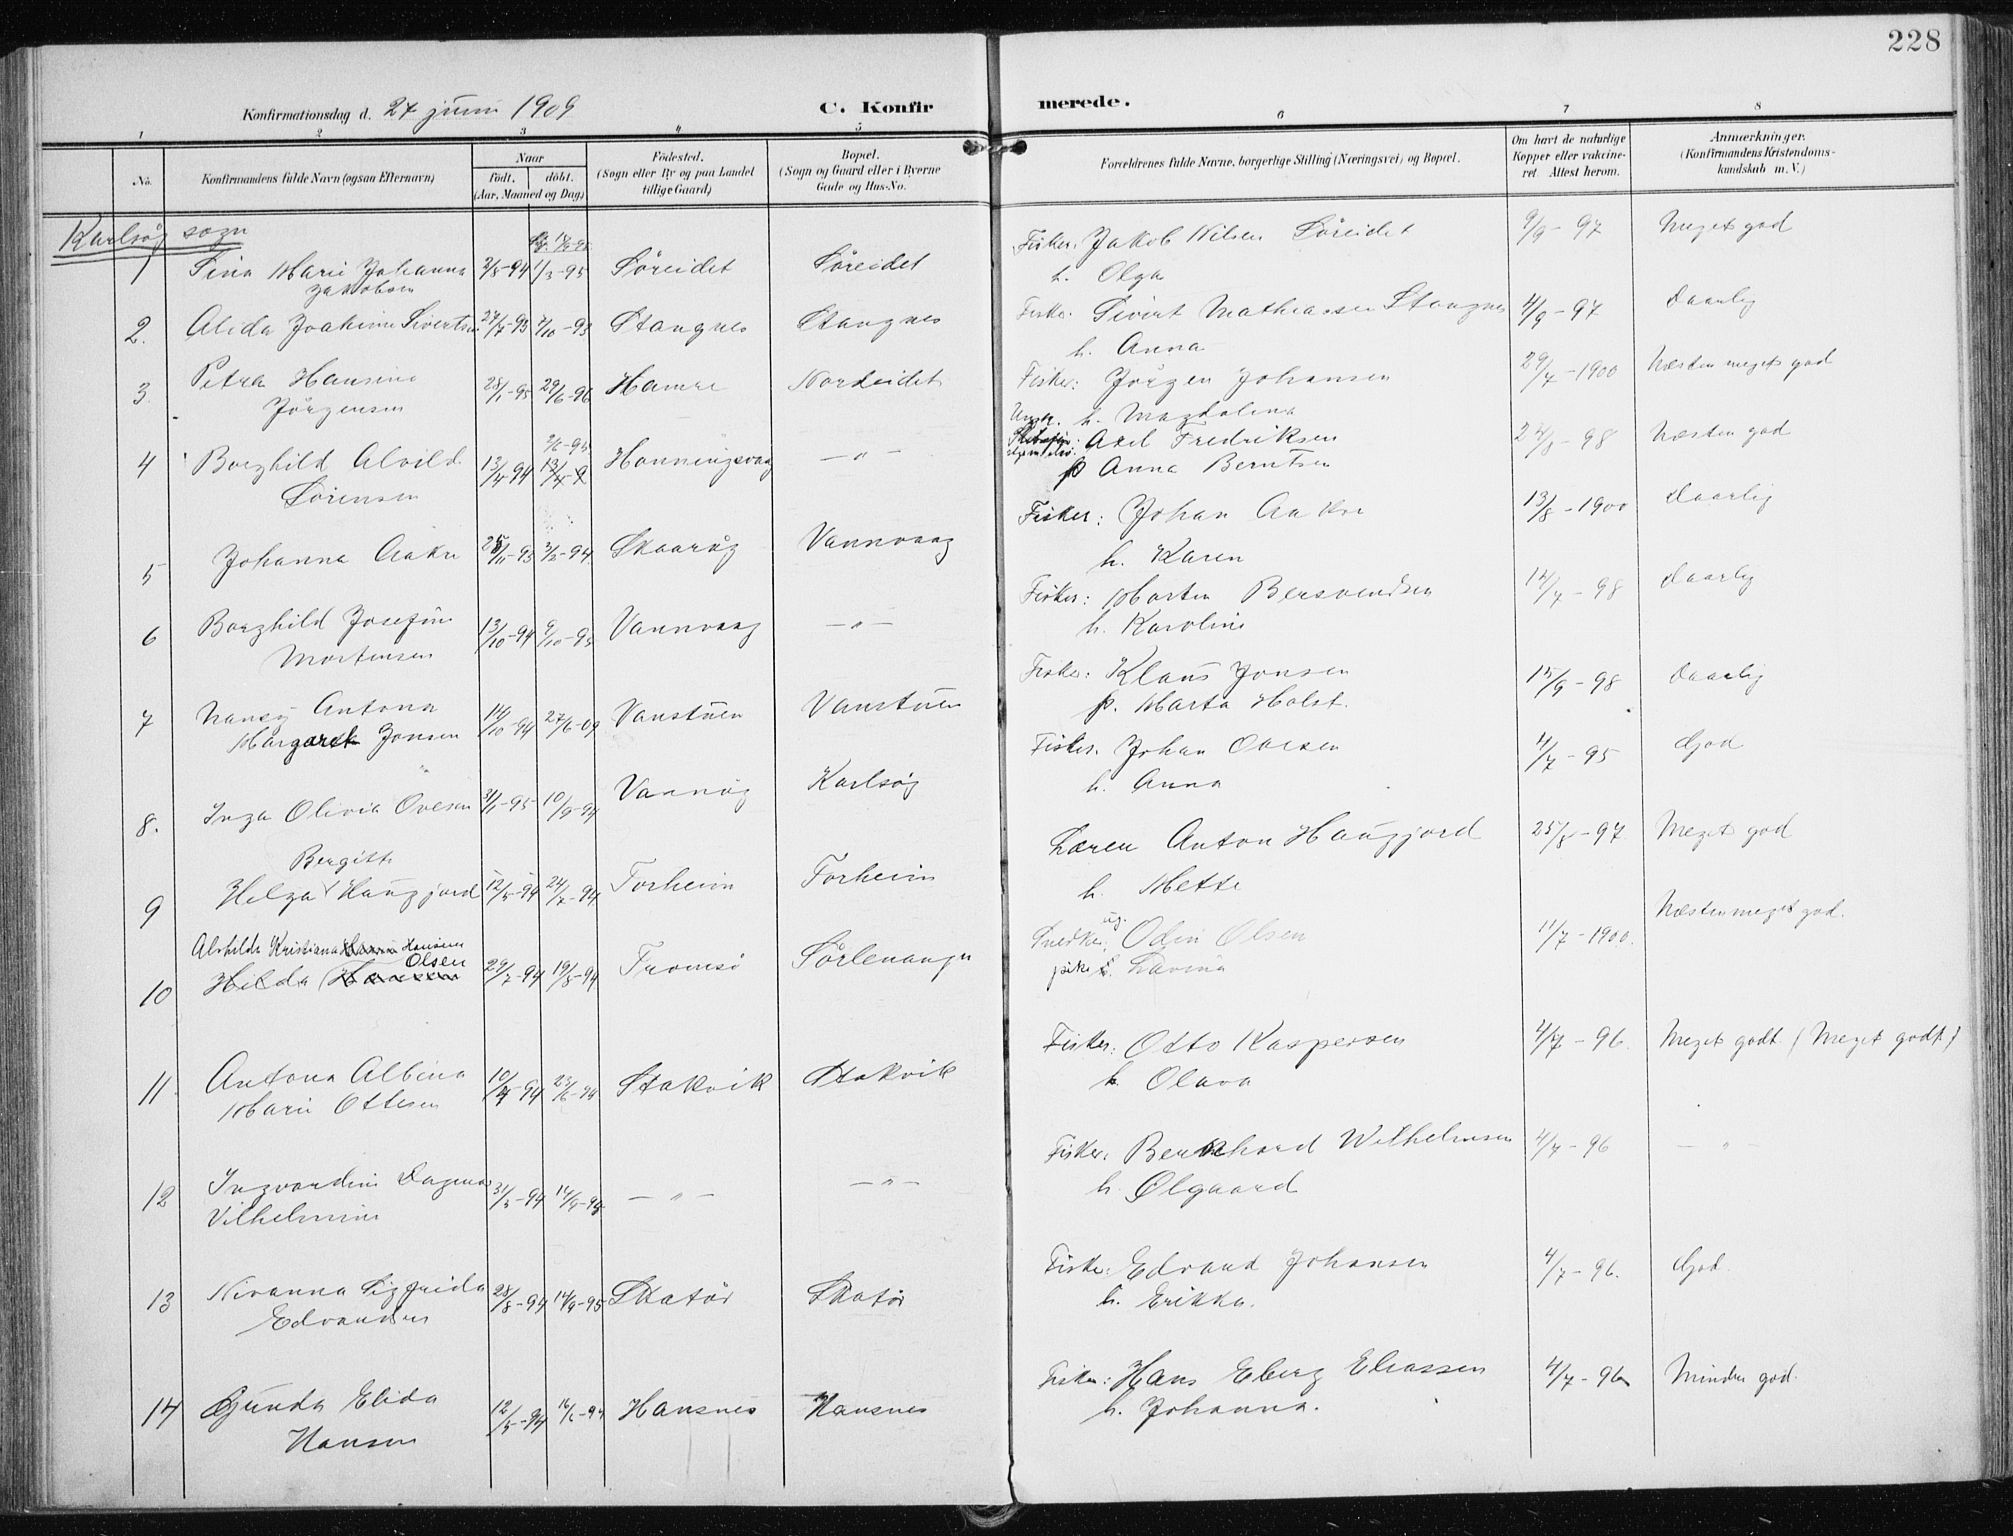 228
Konfirmationsdag d. 27 juni 1909
C. Konfirmerede.
1 2 3 4 5 6 7 8
No.
Konfirmandens fulde Navn (ogsaa Efternavn)
Naar
født. døbt.
(Aar, Maaned og Dag)
Fødested.
(Sogn eller By og paa Landet
tillige Gaard)
Bopæl.
(Sogn og Gaard eller i Byerne
Gade og Hus-No.
Forældrenes fulde Navne, borgerlige Stilling (Næringsvei) og Bopæl.
Om havt de naturlige
Kopper eller vakcine-
ret. Attest herom.
Anmærkninger.
(Konfirmandens Kristendoms-
kundskab m. V.)
Karlsøy sogn
1 Sina Marie Johanna 2/8-94 1/3-95 Søreidet Søreidet Fisker. Jakob Nilsen Søreidet 9/9-97 Meget god
Jakobsen h. Olga
2. Alida Joakime Sivertsen 27/7-93 7/10-93 Stangnes Stangnes Fisker. Sivert Mathiassen Stangnes 4/9-97 Daarlig
h. Anna
3. Petra Hansine 28/1-95 29/6-96 Hamre Nordeidet Fisker: Jørgen Johansen 29/7-1900 Næsten meget god
Jørgensen h. Magdalena
4 Borghild Alvild 13/4-94 Honningsvaag -"- Axel Fredriksen 24/8-98 Næsten god
Sørensen p Anna Berntsen
5 Johanna Aakre 3/2-94 Skaarøy Vannvaag Fisker: Johan Aakre 13/8-1900 Daarlig
h. Karen
6 Borghild Josefine 13/10-94 9/10-95 Vannvaag -"- Fisker: Morten Bersvendsen 12/7-98 Daarlig
Mortensen h. Karoline
7 Nansy Antona 14/10-94 27/6-09 Vanstuen Vanstuen Fisker: Klaus Jonsen 15/9-98 Daarlig
Margaret Jonsen p. Marta Holst.
8. Inga Olivia Ovesen 31/1-95 10/9-94 Vannøy Karlsøy Fisker. Johan Ovesen 4/7-95 God
h. Anna
Bergitte
9 Helga Haugjord 12/5-94 24/7-94 Torheim Torheim Lærer Anton Haugjord 25/8-97 Meget god
h. Mette
Alvhilde Kristiana Hansine
10 Hilda Olsen 29/7-94 19/8-94 Tromsø Sørlenangen Snedker, ug. Odin Olsen 11/7-1900. Næsten meget god.
pike Lavina
11. Antona Albina 10/4-94 23/6-94 Stakvik Stakvik Fisker: Otto Kaspersen 4/7-96. Meget godt (Meget godt)
Marie Ottesen h. Olava
12 Ingvardine Dagmar 31/5-94 -"- -"- Fisker: Bernhard Wilhelmsen 4/7-96 -"-
Vilhelmine h. Olgaard
13 Nivanna Sigfrida 28/8-94 14/9-95 Skatør Skatør Fisker: Edvand Johansen 4/7-96. God.
Edvandsen h. Erikka.
14 Gunda Elida 12/5-94 16/6-94 Hansnes Hansnes Fisker: Hans Eberg Eliassen 4/7-96 Mindre god.
Hansen h. Johanna.